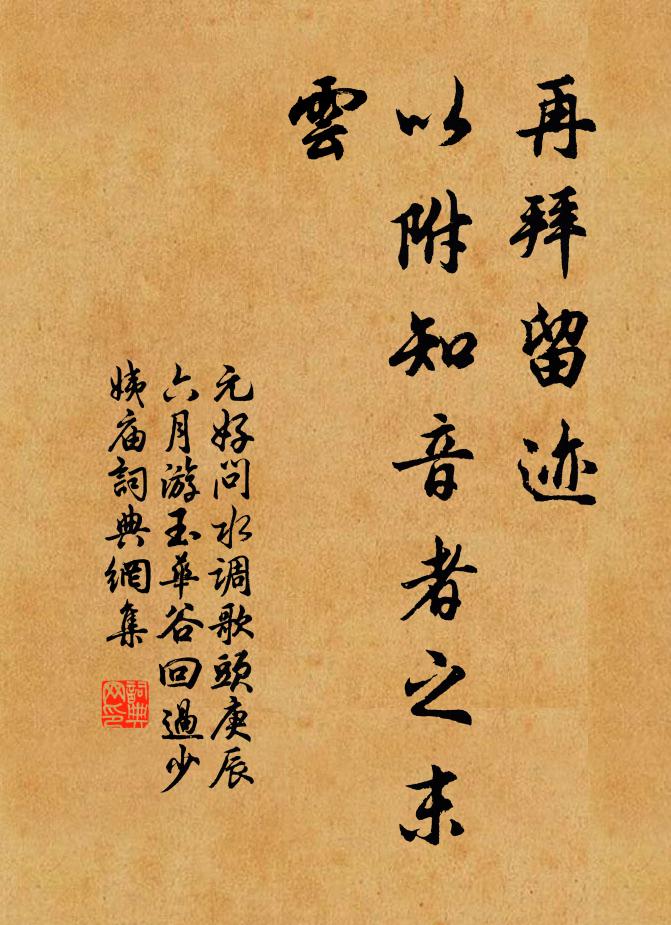 再拜留迹
以附知音者之末
雲
元好问水调歌頭庚辰
六月游玉華谷回過少
姨庙詞典網集
詞典
网印